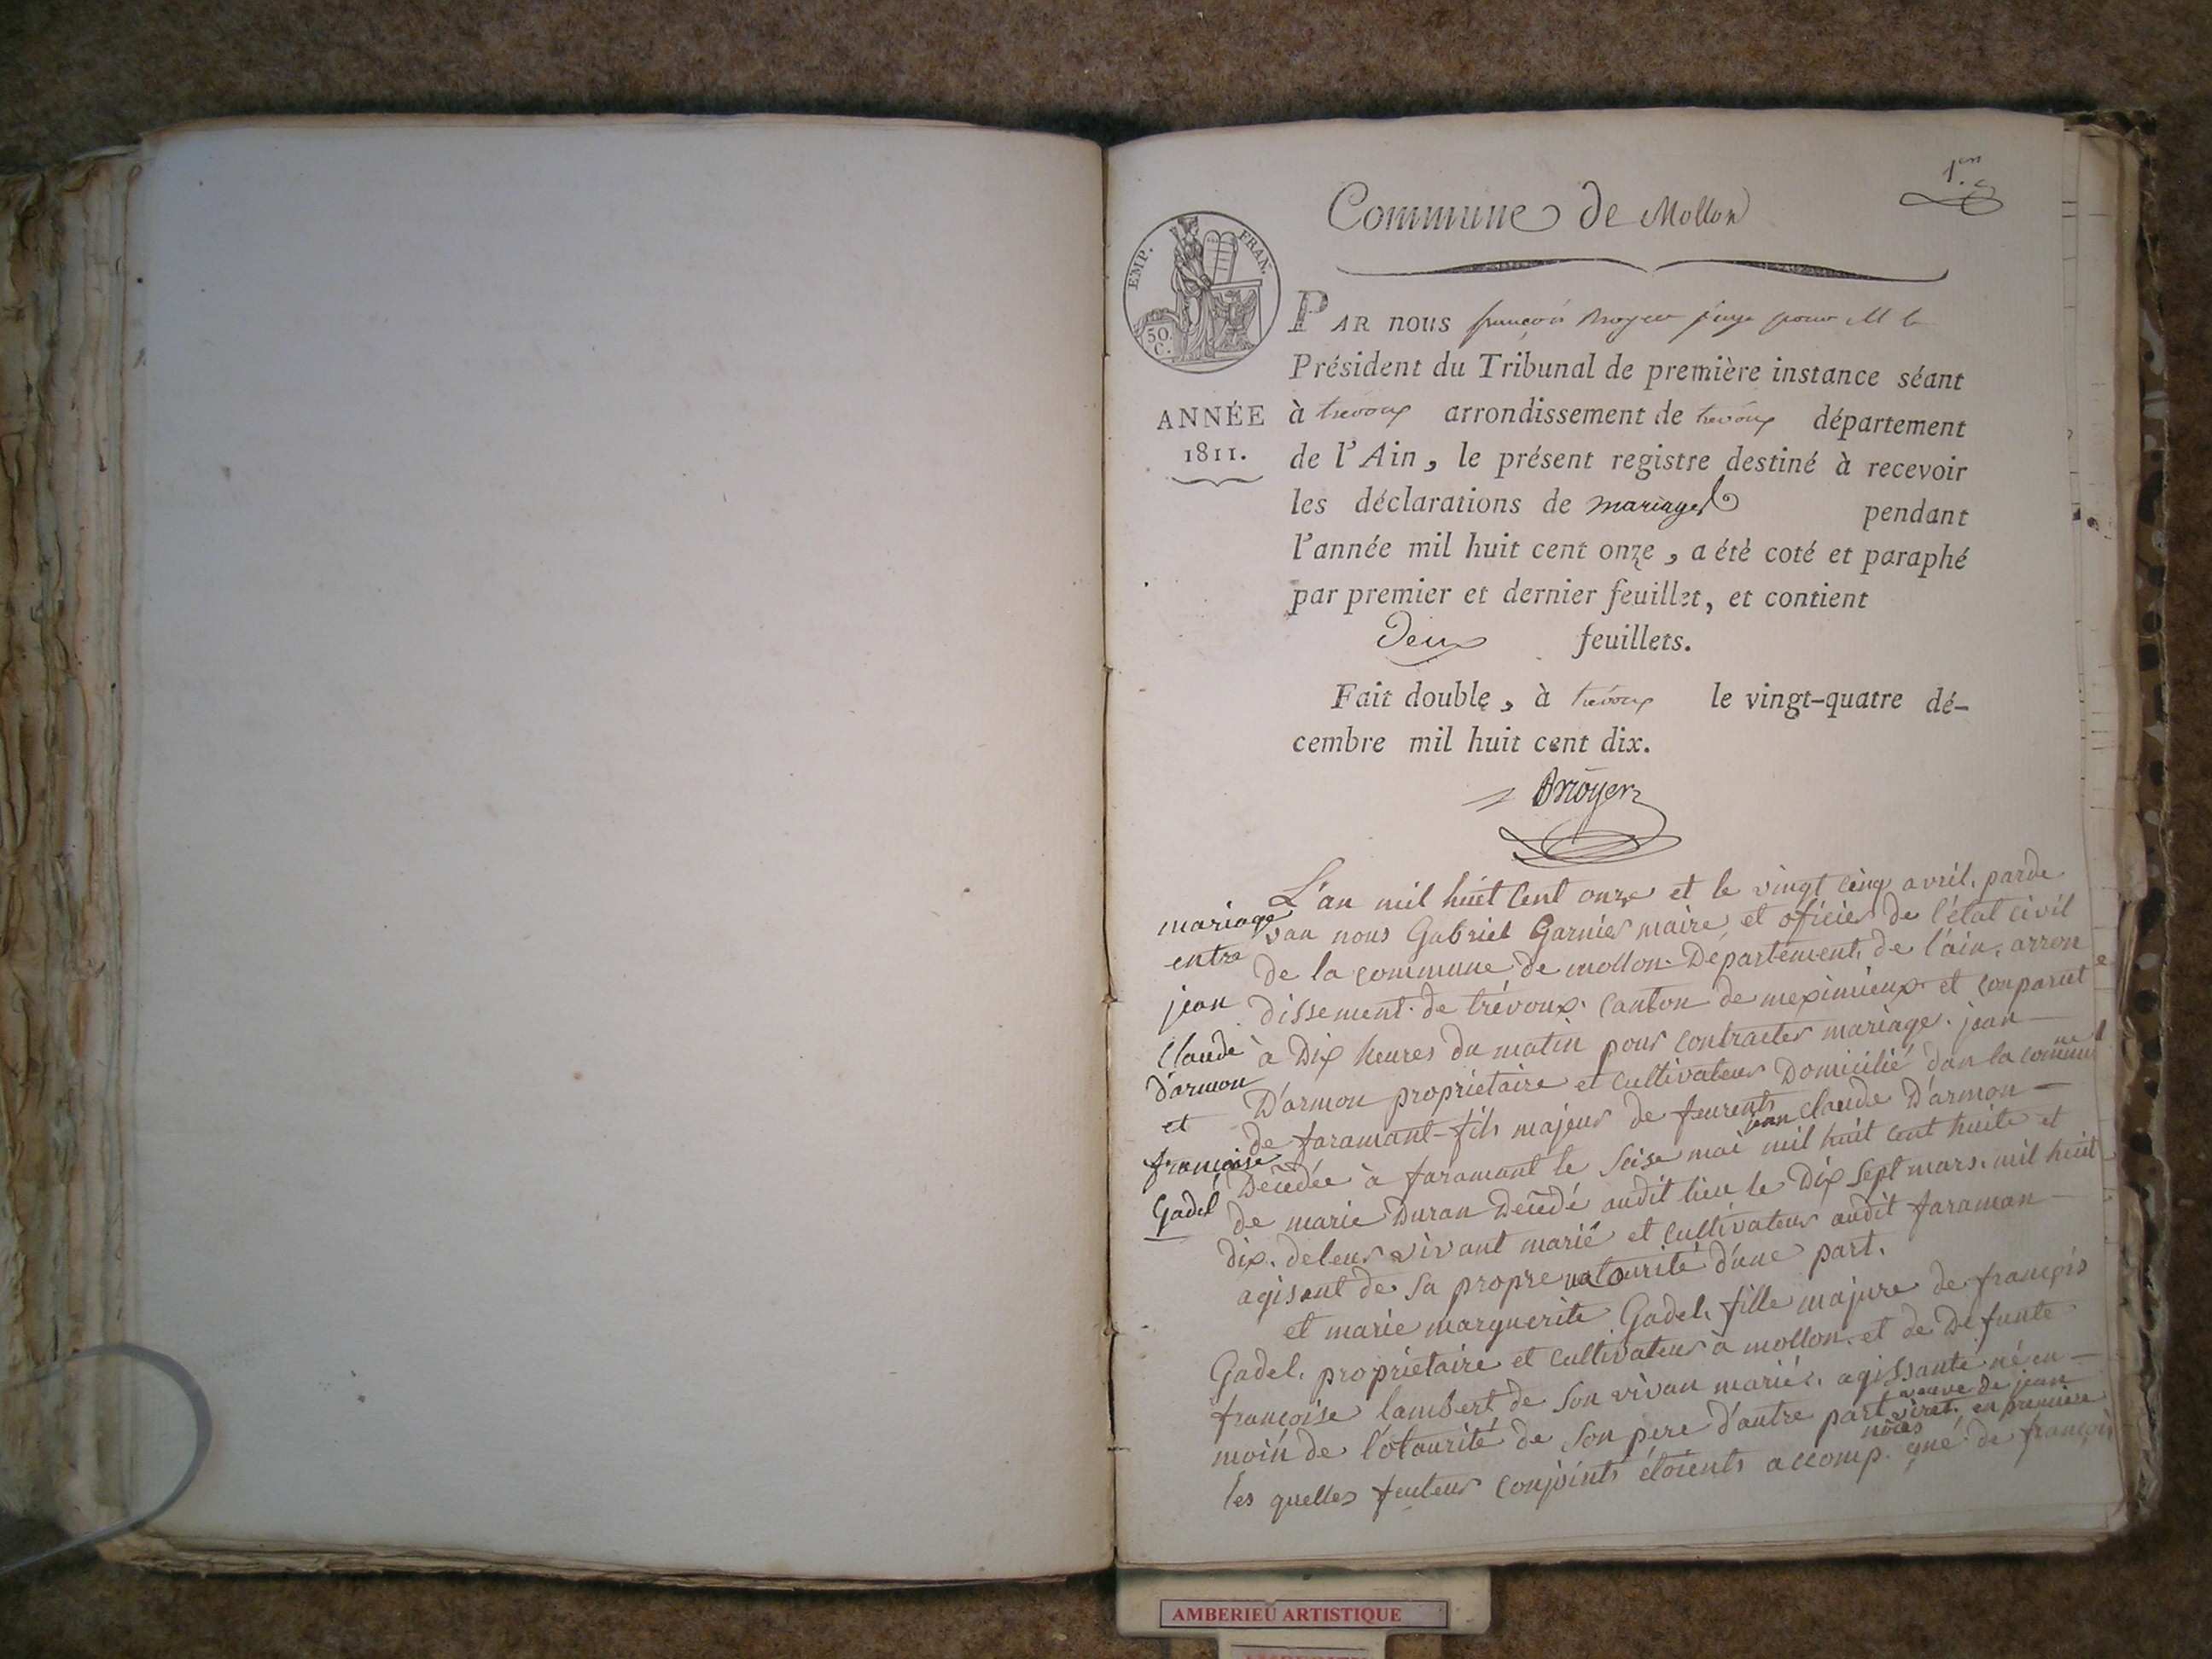 1.er
Commune de Mollon
EMP. FRAN.
50 C.
PAR nous françois Broyer juge pour M le
Président du Tribunal de première instance séant
à trévoux arrondissement de trévoux département
de l'Ain, le présent registre destiné à recevoir
les déclarations de mariages pendant
l'année mil huit cent onze, a été coté et paraphé
par premier et dernier feuillet, et contient
Deux feuillets.
Fait double, à trévoux le vingt-quatre dé-
cembre mil huit cent dix.
Broyer
ANNÉE
1811.
mariage
entre
jean
Claude
D'armon
et
françoise
Gadel
L'an mil huit Cent onze et le vingt Cinq avril. parde
van nous Gabriel Garnier maire, et oficier de l'état civil
de la commune de mollon. Département de l'ain. arron
dissement de trévoux. Canton de meximieux et Comparut
à Dix heures du matin pour Contracter mariage. jean
D'armon proprietaire et Cultivateur Domicilié dan la Commune
de faramant fils majeur de jean Claude D'armon
Décédée à faramant le seise mai mil huit Cent huite et
de marie Duran Décédé audit lieu le Dix Sept mars. mil huit
dix. deleur vivant marié et Cultivateur audit faraman
agisant de Sa propre d'une part.
et marie marguerite Gadel. fille majure de françois
Gadel. proprietaire et Cultivateur à mollon. et de Défunte
françoise lambert de Son vivan mariés. agissante né en
moin de l'otaurité de Son pere d'autre part veuve de jean
viret. en premiere
nôces
les quelles futeur Conjoints étoients accomp. gné de françois
AMBERIEU ARTISTIQUE